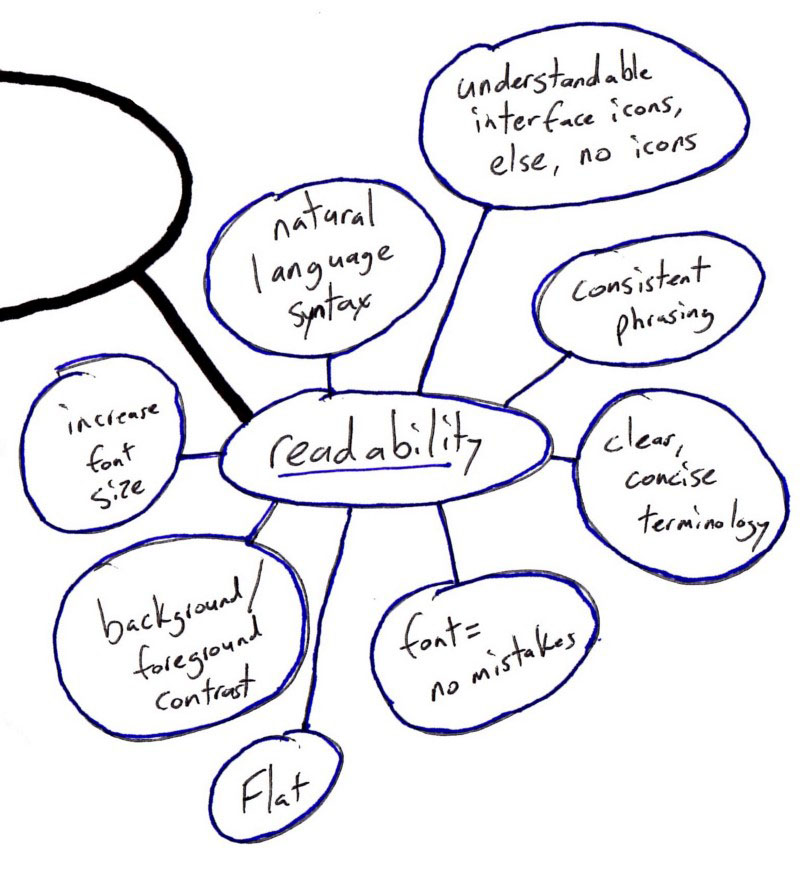 understandable
interface icons,
else, no icons
natural
language
syntax
consistent
phrasing
increase
font
size
readability
clear,
concise
terminology
background/
foreground
contrast
font=
no mistakes
Flat